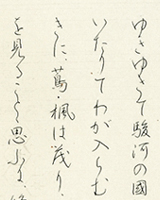 ゆきゆきて駿河の國
いたりてわが入らむ
きに、蔦・楓は茂り、
を見ることゝ思ふに、